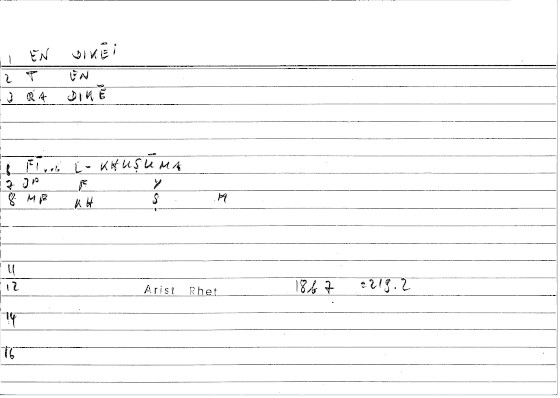 1 EN DIKĒi
2 T EN
3 QA DIKĒ
6 FI... L- KHUṢŪMA
7 JP F Y
8 MF KH Ṣ M
11
12 Arist Rhet 18b7 =219.2
14
16